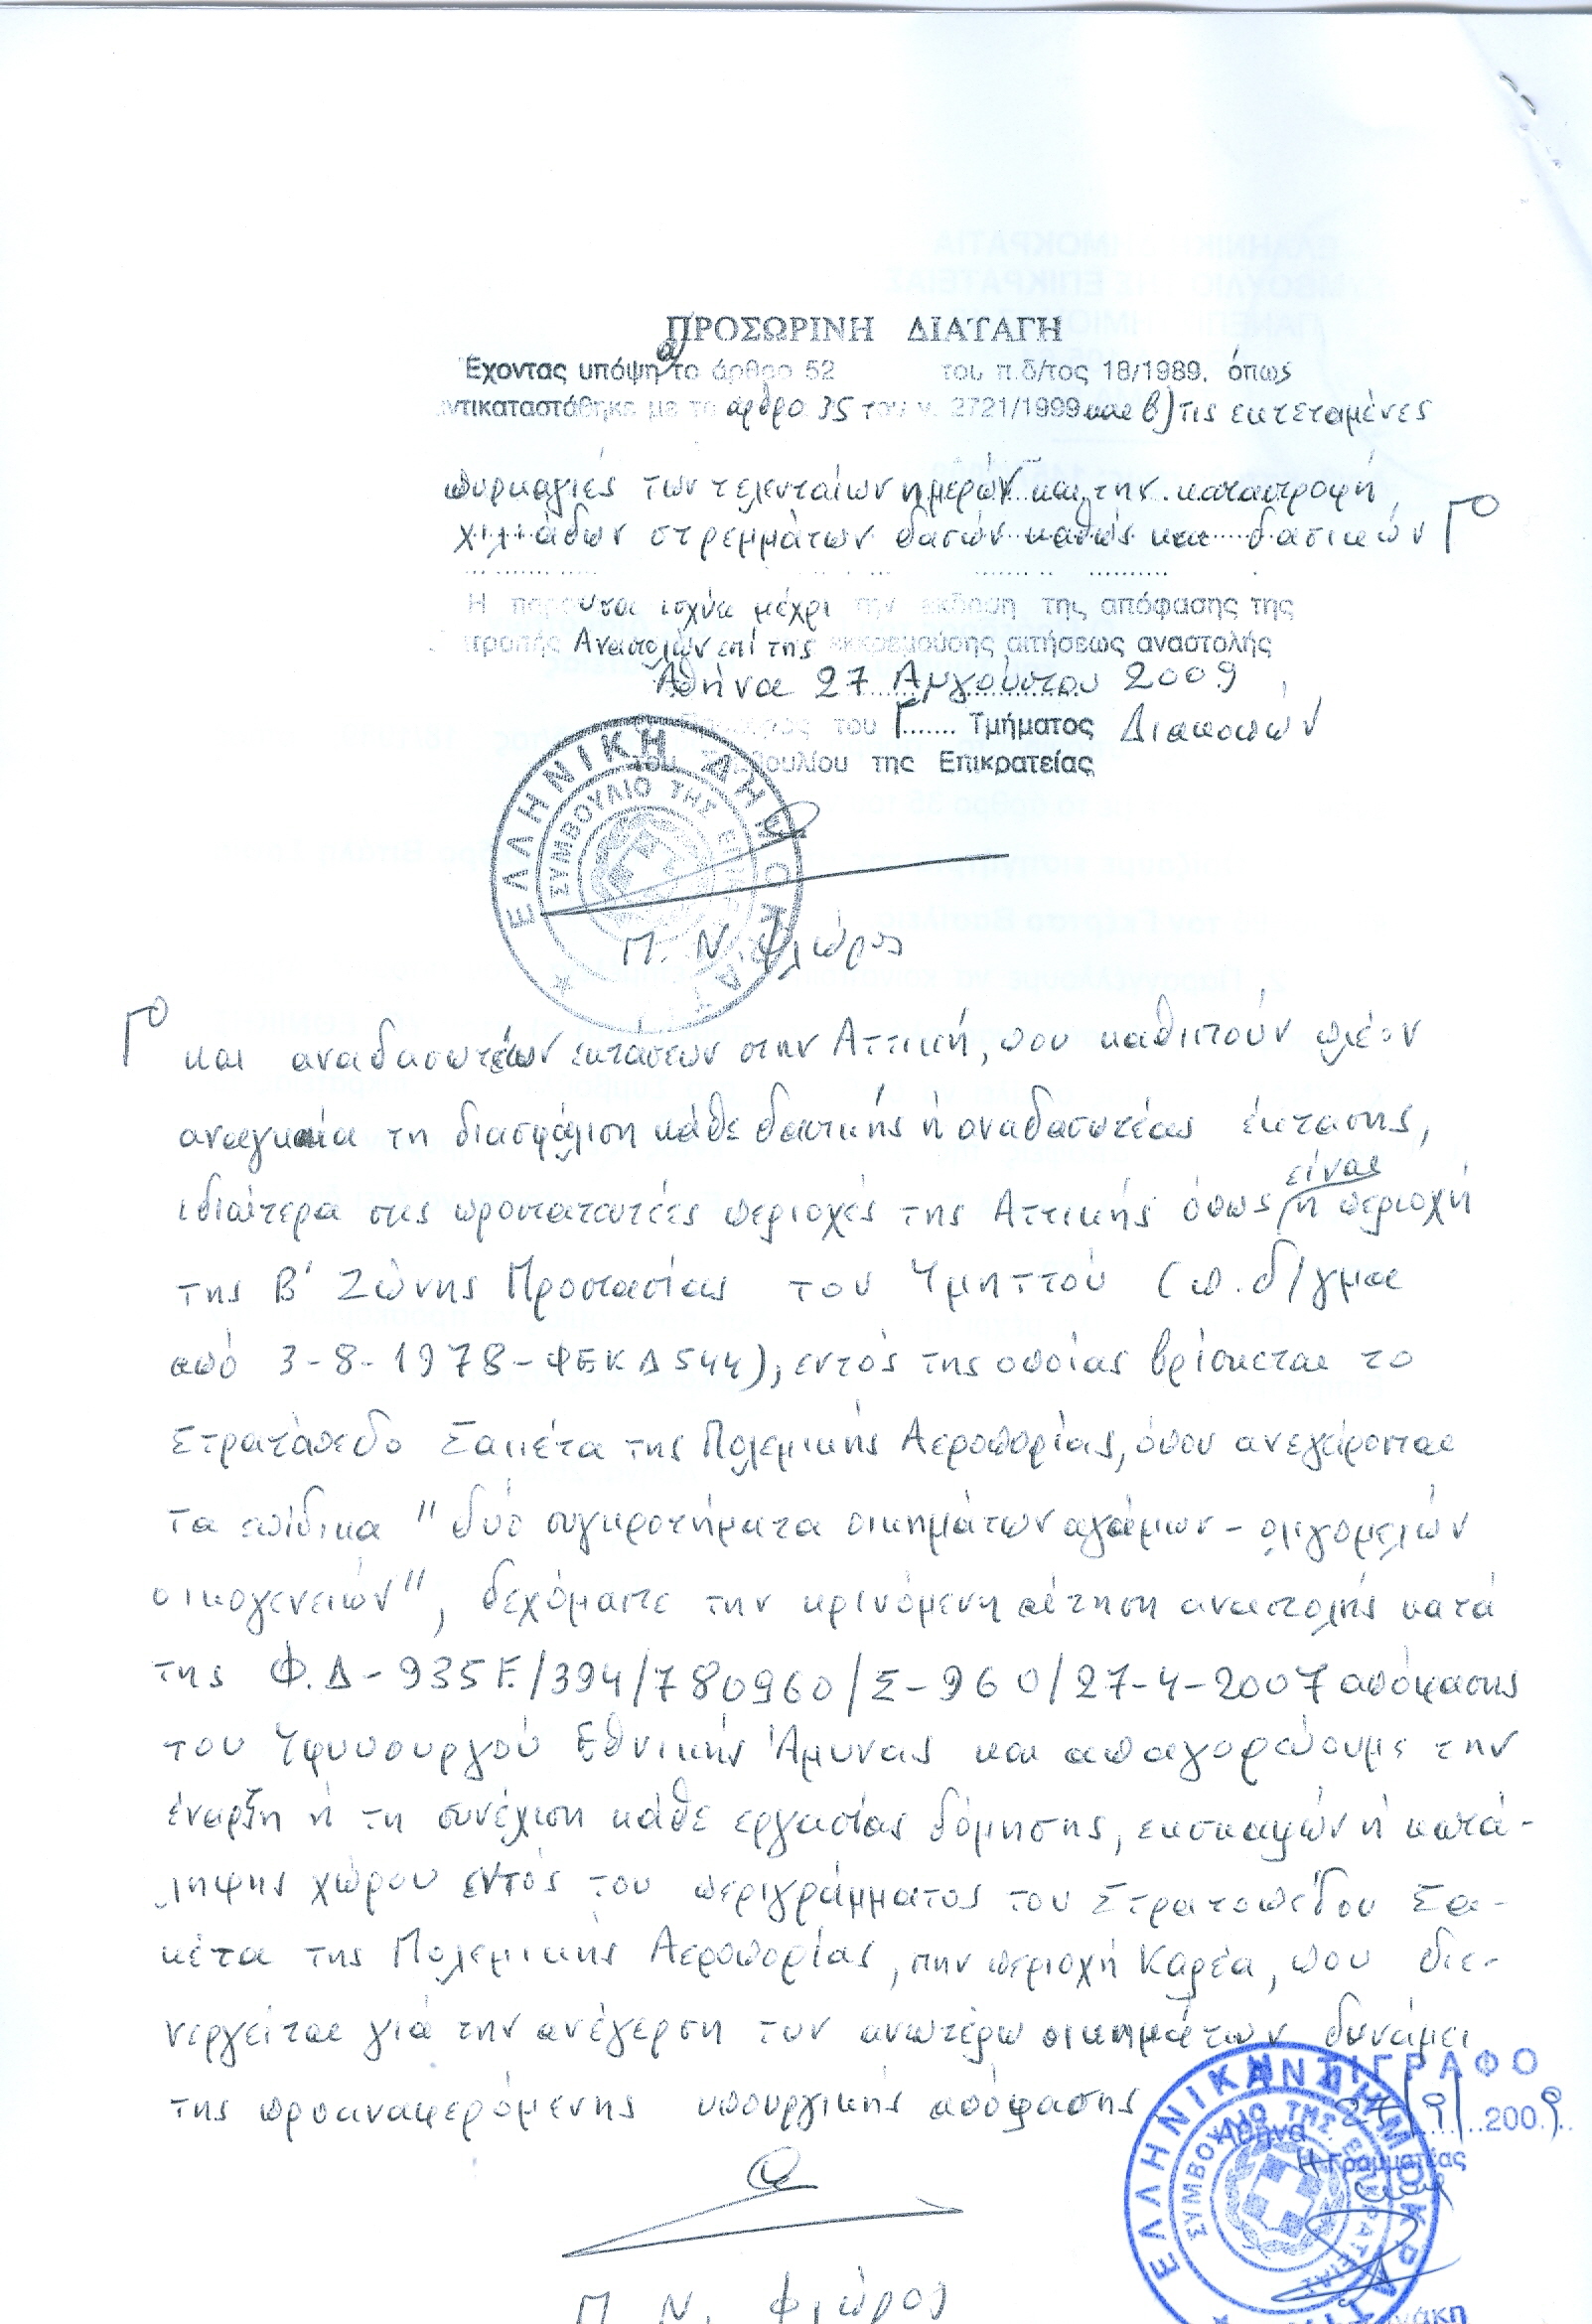 ΠΡΟΣΩΡΙΝΗ ΔΙΑΤΑΓΗ
Έχοντας υπόψη α) το άρθρο 52 του π.δ/τος 18/1989, όπως
αντικαταστάθηκε με το άρθρο 35 του ν. 2721/1999 και β) τις εκτεταμένες
πυρκαγιές των τελευταίων ημερών και την καταστροφή
χιλιάδων στρεμμάτων δασών καθώς και δασικών
Η παρούσα ισχύει μέχρι την έκδοση της απόφασης της
Επιτροπής Αναστολών επί της εκκρεμούσης αιτήσεως αναστολής
Αθήνα 27 Αυγούστου 2009
Πρόεδρος του Γ' Τμήματος Διακοπών
του Συμβουλίου της Επικρατείας
ΕΛΛΗΝΙΚΗ ΔΗΜΟΚΡΑΤΙΑ
ΣΥΜΒΟΥΛΙΟ ΤΗΣ ΕΠΙΚΡΑΤΕΙΑΣ
Π. Ν. Φλώρος
και αναδασωτέων εκτάσεων στην Αττική, που καθιστούν πλέον
αναγκαία τη διασφάλιση κάθε δασικής ή αναδασωτέας έκτασης,
ιδιαίτερα στις προστατευτέες περιοχές της Αττικής όπως είναι η περιοχή
της Β' Ζώνης Προστασίας του Υμηττού (π.δ/γμα
από 3-8-1978-ΦΕΚ Δ 544), εντός της οποίας βρίσκεται το
Στρατόπεδο Σακέτα της Πολεμικής Αεροπορίας, όπου ανεγείρονται
τα επίδικα "δύο συγκροτήματα οικημάτων αγάμων - ολιγομελών
οικογενειών", δεχόμαστε την κρινόμενη αίτηση αναστολής κατά
της Φ.Δ-935 F./394/780960/Σ-960/27-4-2007 απόφασης
του Υφυπουργού Εθνικής Άμυνας και απαγορεύουμε την
έναρξη ή τη συνέχιση κάθε εργασίας δόμησης, εκσκαφών ή κατά-
ληψης χώρου εντός του περιγράμματος του Στρατοπέδου Σα-
κέτα της Πολεμικής Αεροπορίας, στην περιοχή Καρέα, που διε-
νεργείται γιά την ανέγερση των ανωτέρω οικημάτων δυνάμει
της προαναφερόμενης υπουργικής απόφασης
Π. Ν. Φλώρος
ΑΝΤΙΓΡΑΦΟ
Αθήνα 27/9/2009
Η Γραμματέας
ΕΛΛΗΝΙΚΗ ΔΗΜΟΚΡΑΤΙΑ
ΣΥΜΒΟΥΛΙΟ ΤΗΣ ΕΠΙΚΡΑΤΕΙΑΣ